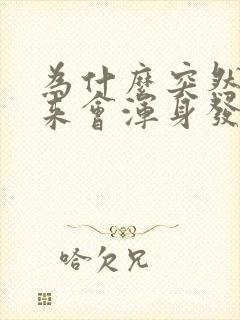 為什麼突然
來會渾身發
哈欠兄